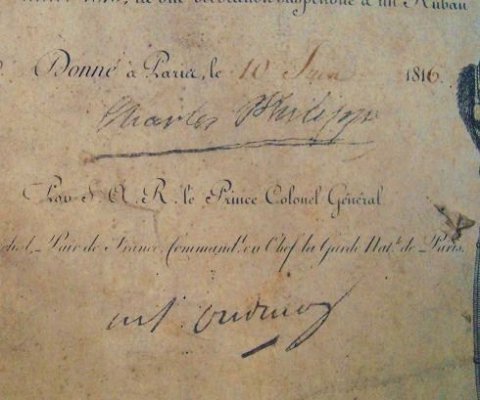 décoration suspendue à un Ruban
Donné à Paris, le 10 Juin 1816.
Charles Philippe
Par S. A. R. le Prince Colonel Général
Pair de France, Command.t en Chef la Garde Nat.le de Paris,
Oudinot